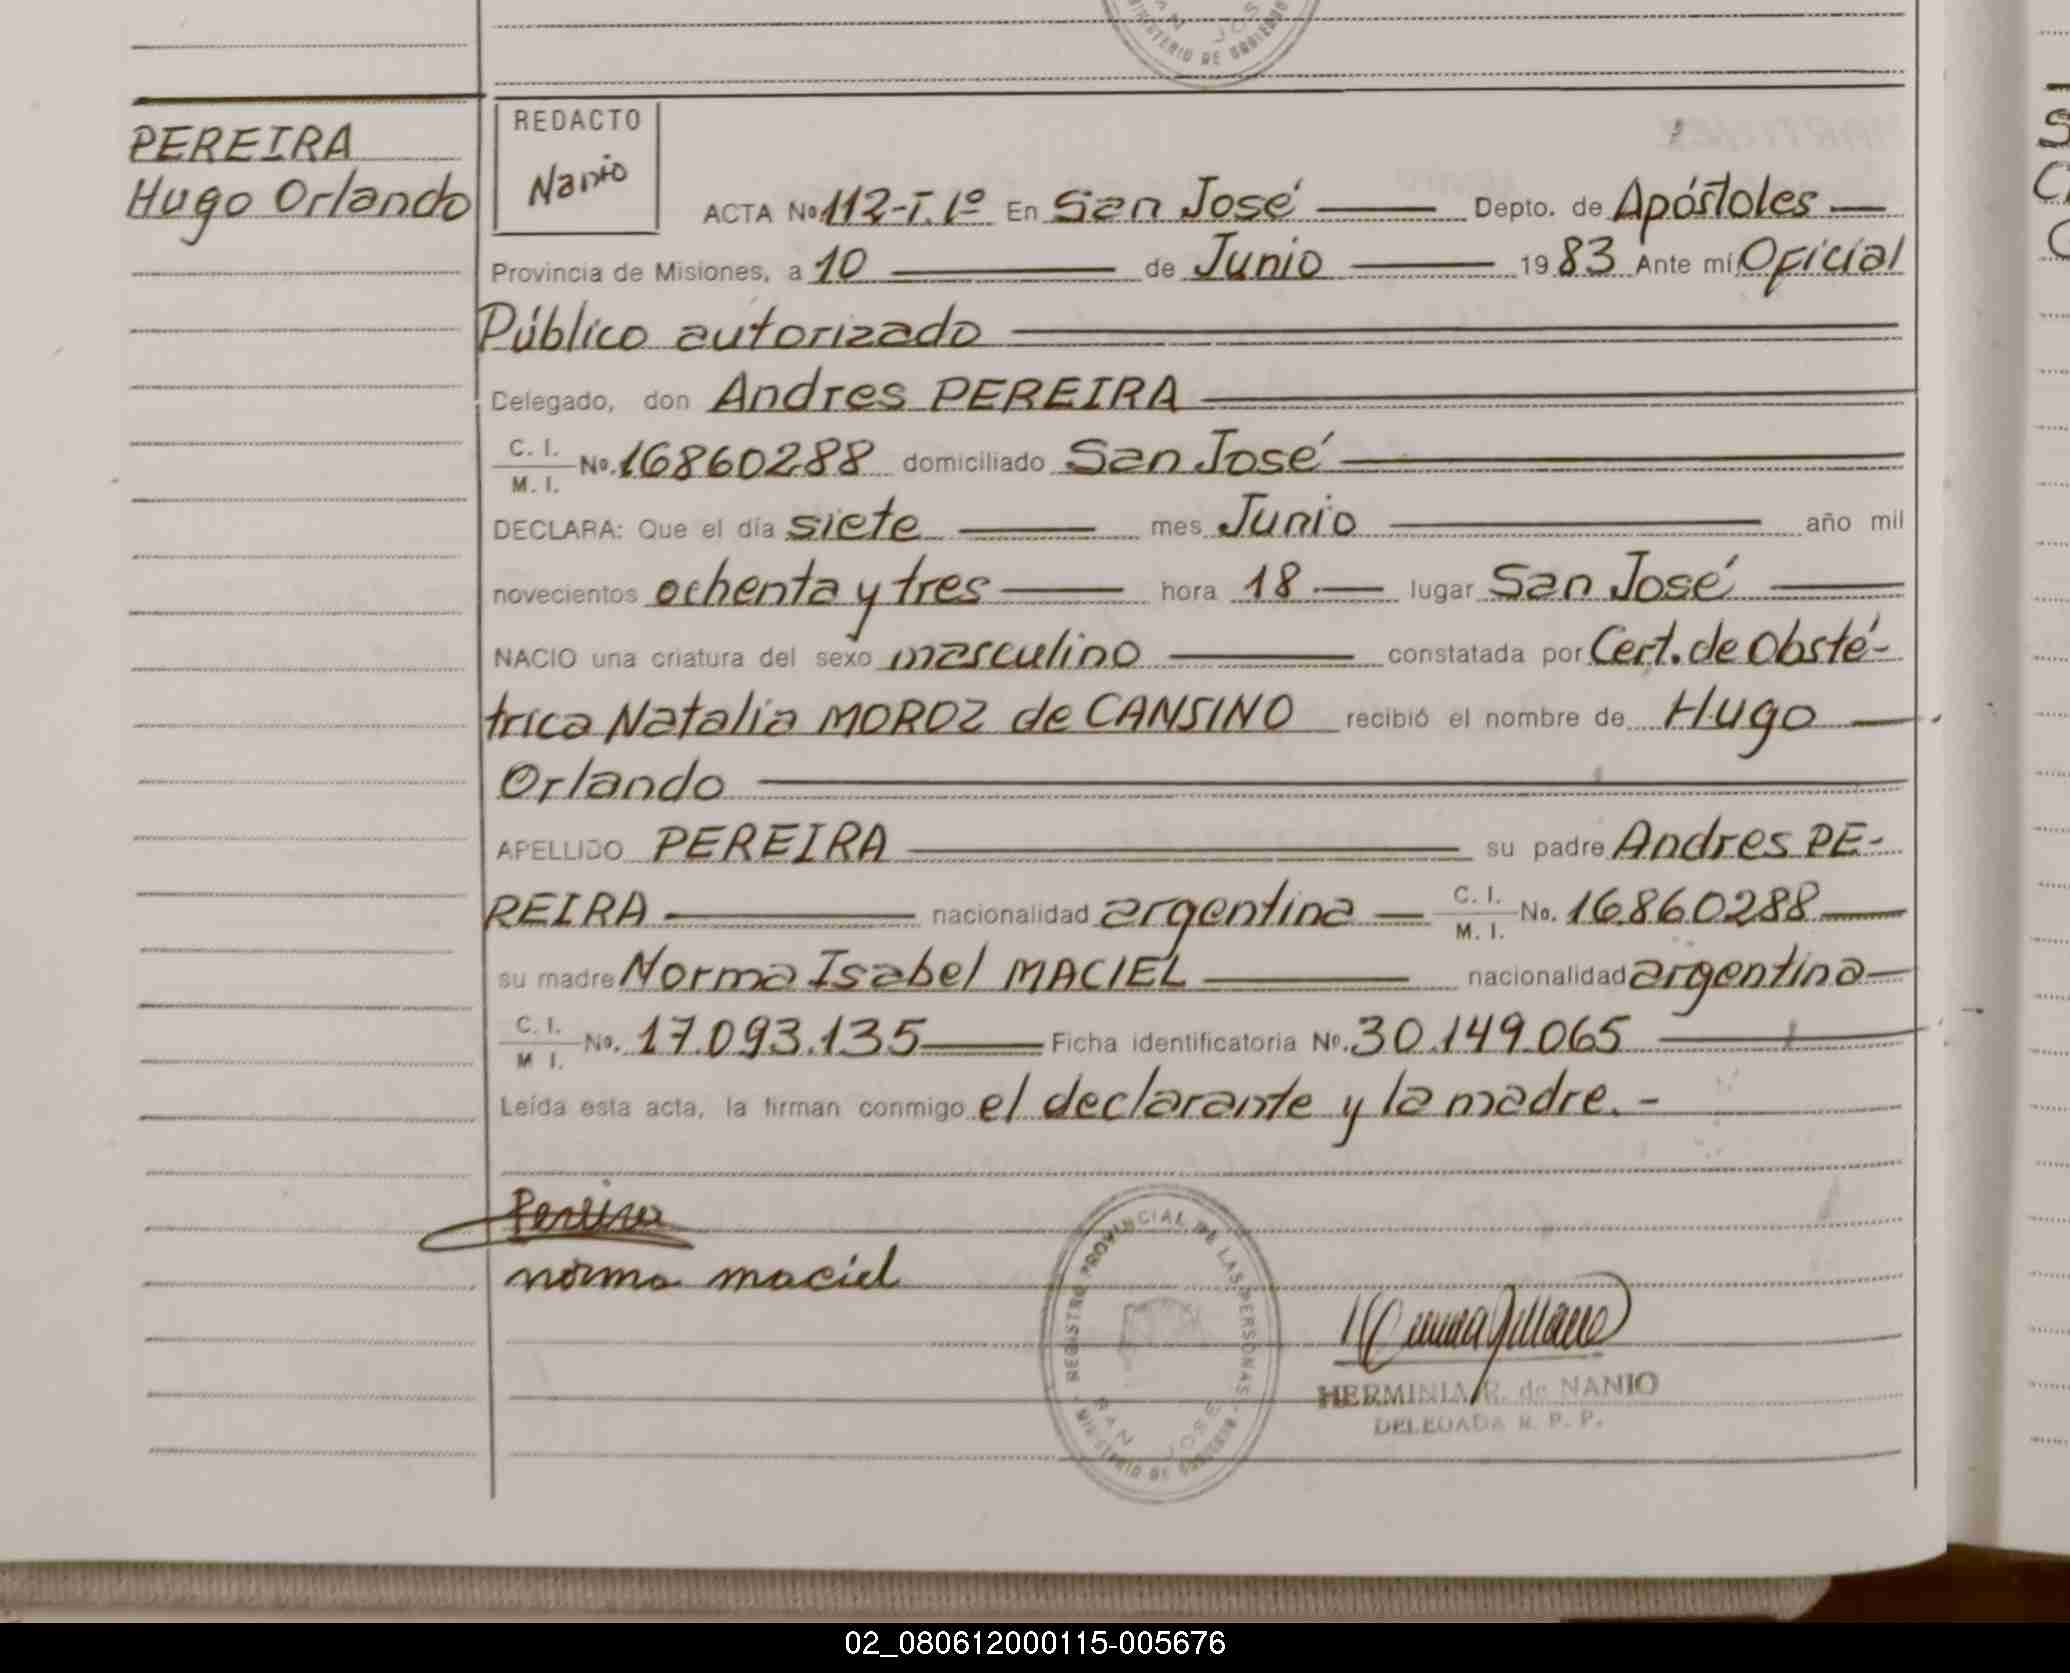 MINISTERIO DE GOBIERNO
PEREIRA
Hugo Orlando
REDACTO
Nanio
ACTA No 112-T.1º En San José Depto. de Apóstoles
Provincia de Misiones, a 10 de Junio 1983 Ante mí, Oficial
Público autorizado
Delegado, don Andres PEREIRA
C. I.
M. I. No. 16860288 domiciliado San José
DECLARA: Que el día siete mes Junio año mil
novecientos ochenta y tres hora 18 lugar San José
NACIO una criatura del sexo masculino constatada por Cert. de Obsté-
trica Natalia MOROZ de CANSINO recibió el nombre de Hugo
Orlando
APELLIDO PEREIRA su padre Andres PE-
REIRA nacionalidad argentina C. I. M. I. No. 16860288
su madre Norma Isabel MACIEL nacionalidad argentina
C. I.
M I. No. 17.093.135 Ficha identificatoria No. 30.149.065
Leída esta acta, la firman conmigo el declarante y la madre. -
Pereira
norma maciel
REGISTRO PROVINCIAL DE LAS PERSONAS
SAN JOSE
MINISTERIO DE GOBIERNO
HERMINIA R. de NANIO
DELEGADA R. P. P.
02_080612000115-005676